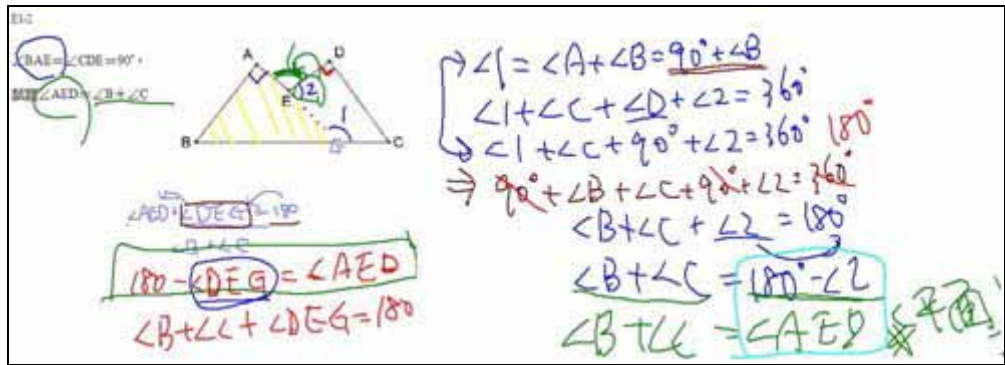 ∠BAE=∠CDE=90°，
∠AED=∠B+∠C
A
D
E
2
1
B
G
C
∠AED+∠DEG=180
∠B+∠C
180-∠DEG=∠AED
∠B+∠C+∠DEG=180
∠1=∠A+∠B=90°+∠B
∠1+∠C+∠D+∠2=360°
∠1+∠C+90°+∠2=360°
180°
⇒ 90°+∠B+∠C+90°+∠2=360°
∠B+∠C+∠2=180°
∠B+∠C=180°-∠2
∠B+∠C=∠AED
平面